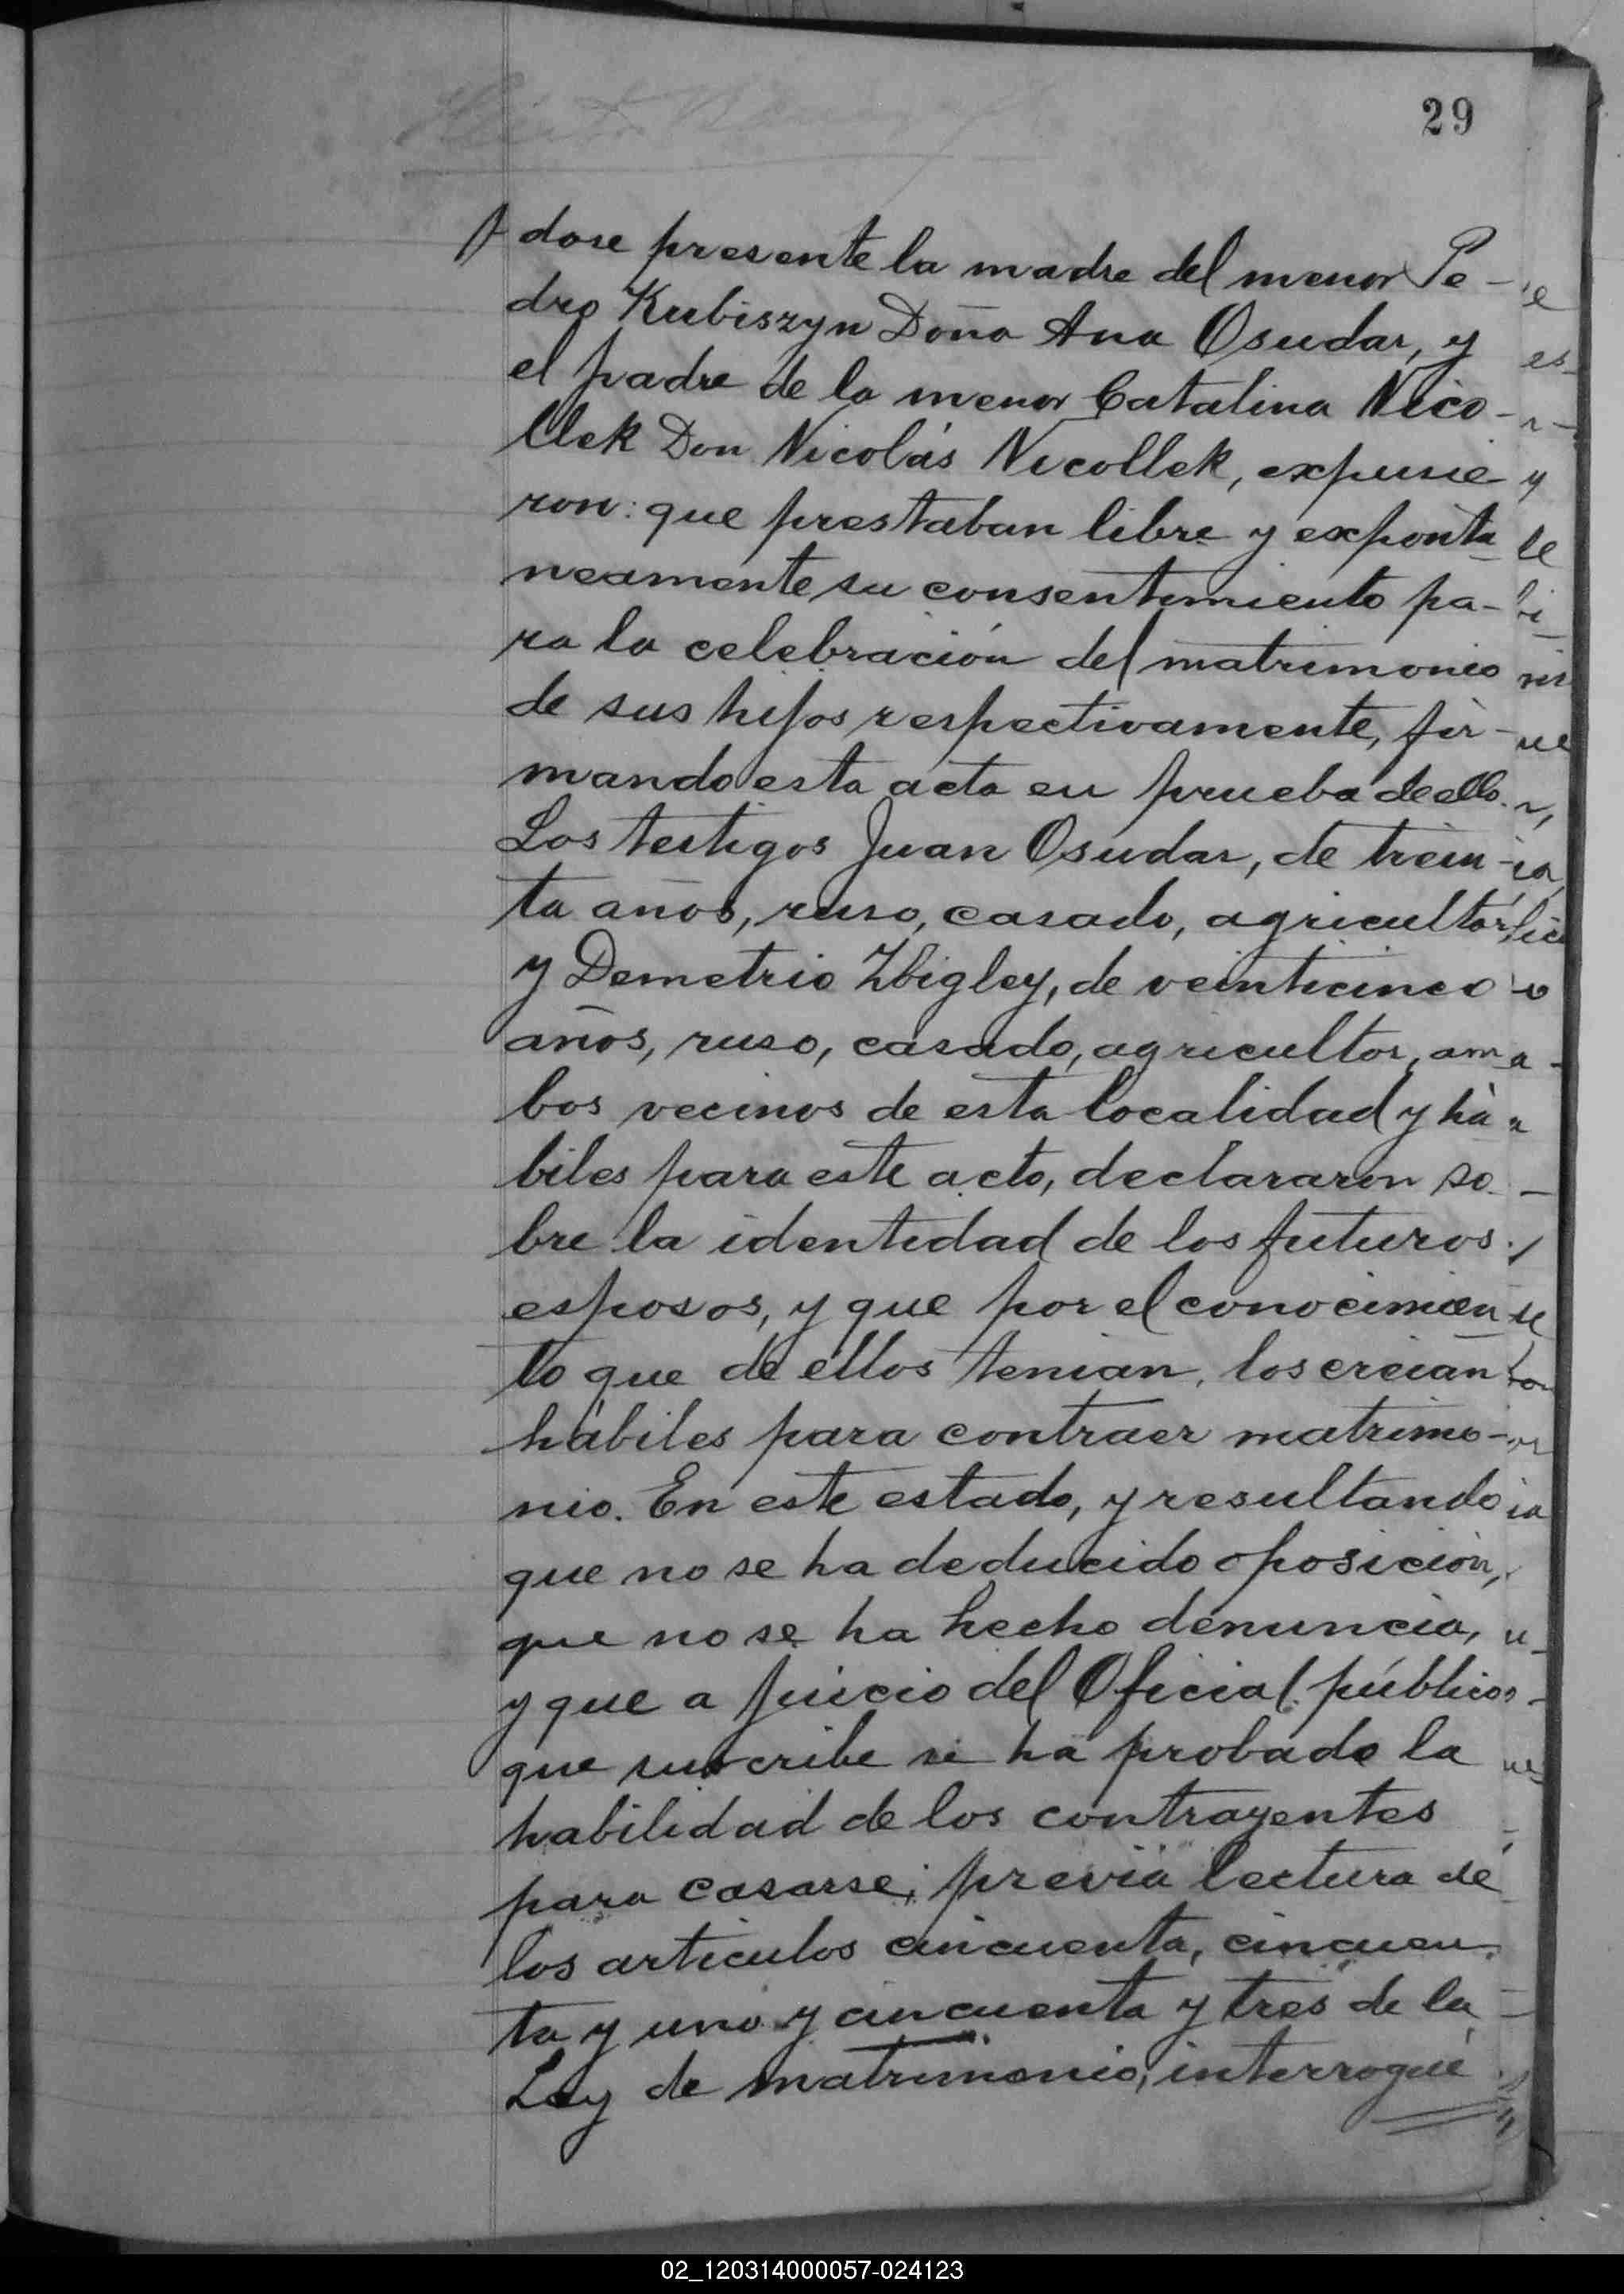 29
dose presente la madre del menor Pe-
dro Kubiszyn Doña Ana Osudar, y
el padre de la menor Catalina Nico-
llek Don Nicolás Nicollek, expusie
ron: que prestaban libre y exponta
neamente su consentimiento pa-
ra la celebración del matrimonio
de sus hijos respectivamente, fir-
mando esta acta en prueba de ello.
Los testigos Juan Osudar, de trein-
ta años, ruso, casado, agricultor,
y Demetrio Zbigley, de veinticinco
años, ruso, casado, agricultor, am
bos vecinos de esta localidad y há
biles para este acto, declararon so-
bre la identidad de los futuros
esposos, y que por el conocimien
to que de ellos tenian, los creian
hábiles para contraer matrimo-
nio. En este estado, y resultando
que no se ha deducido oposición,
que no se ha hecho denuncia,
y que a juicio del Oficial público
que suscribe se ha probado la
habilidad de los contrayentes
para casarse; previa lectura de
los articulos cincuenta, cincuen
ta y uno y cincuenta y tres de la
Ley de matrimonio, interrogué
02_120314000057-024123